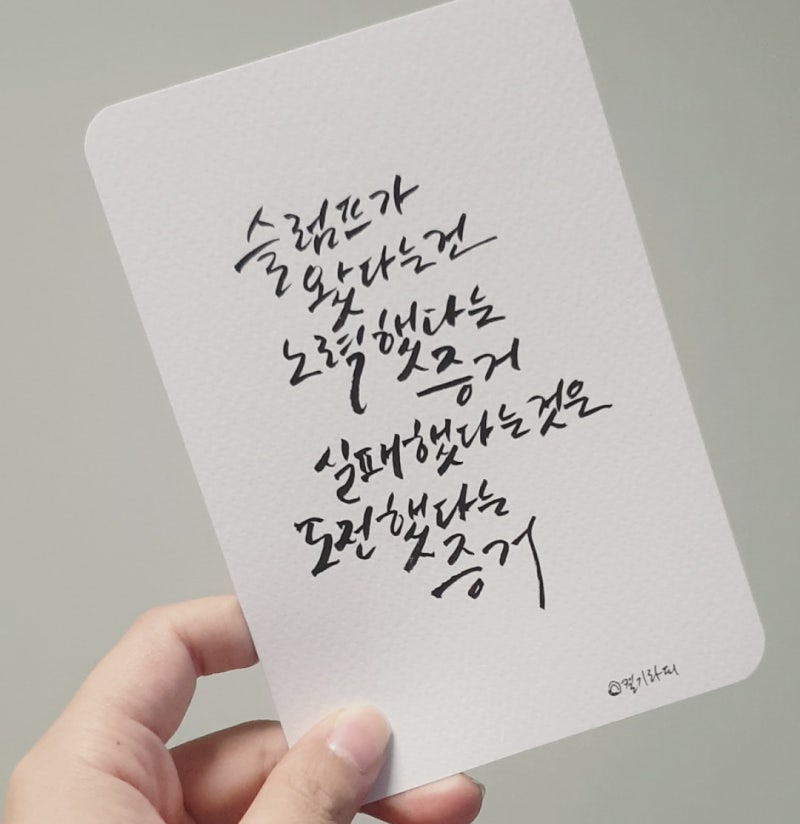 슬럼프가
왔다는건
노력했다는
증거
실패했다는것은
도전했다는
증거